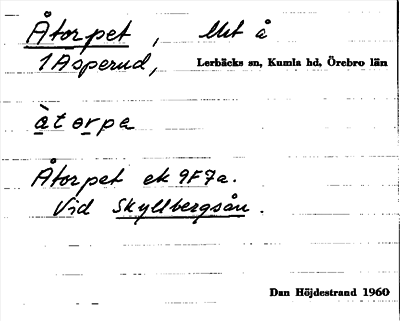 Åtorpet, Ut å
1 Asperud, Lerbäcks sn, Kumla hd, Örebro län
àtorpa
Åtorpet ek 9F7a.
Vid Skyllbergsån.
Dan Höjdestrand 1960